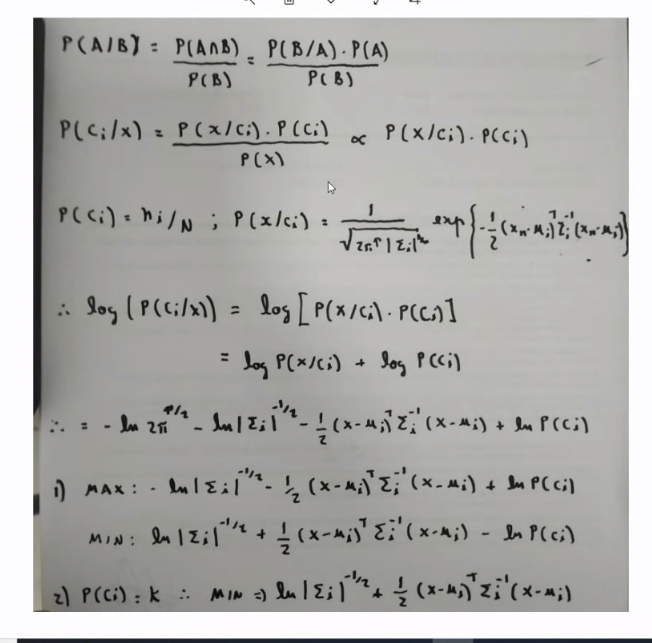 P(A/B) = P(A∩B)/P(B) = P(B/A)·P(A)/P(B)
P(Ci/x) = P(x/Ci)·P(Ci)/P(x) ∝ P(x/Ci)·P(Ci)
P(Ci) = ni/N ; P(x/Ci) = 1/√2π^P |Σi|^½ exp{-1/2 (xn-μi)^T Σi^-1 (xn-μi)}
∴ log(P(Ci/x)) = log[P(x/Ci)·P(Ci)]
= log P(x/Ci) + log P(Ci)
∴ = - ln 2π^P/2 - ln|Σi|^-1/2 - 1/2 (x-μi)^T Σi^-1 (x-μi) + ln P(Ci)
1) MAX : - ln|Σi|^-1/2 - 1/2 (x-μi)^T Σi^-1 (x-μi) + ln P(Ci)
MIN : ln|Σi|^-1/2 + 1/2 (x-μi)^T Σi^-1 (x-μi) - ln P(Ci)
2) P(Ci) = K ∴ MIN => ln|Σi|^-1/2 + 1/2 (x-μi)^T Σi^-1 (x-μi)